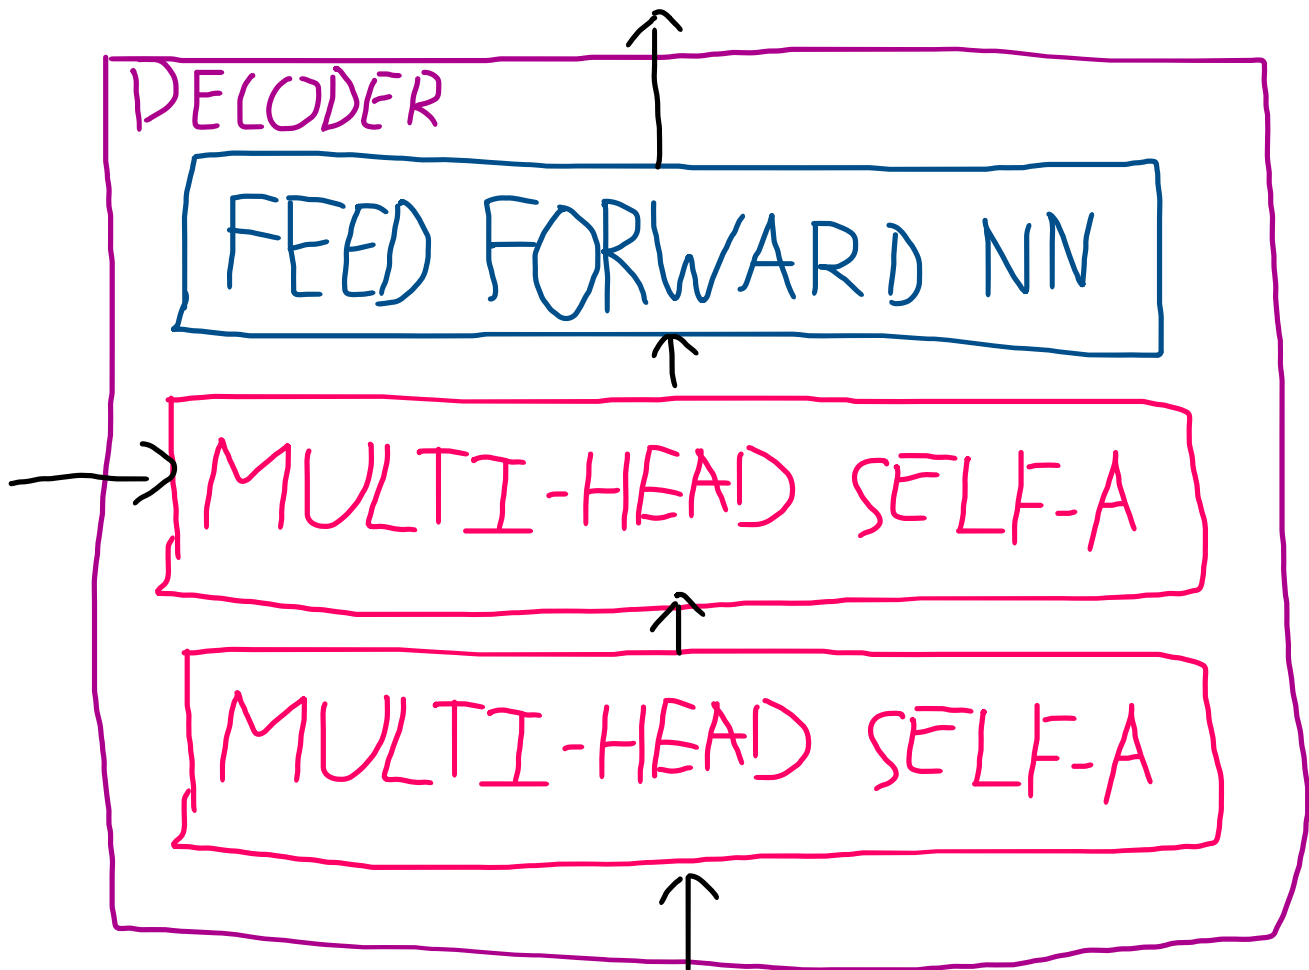 DECODER
FEED FORWARD NN
MULTI-HEAD SELF-A
MULTI-HEAD SELF-A